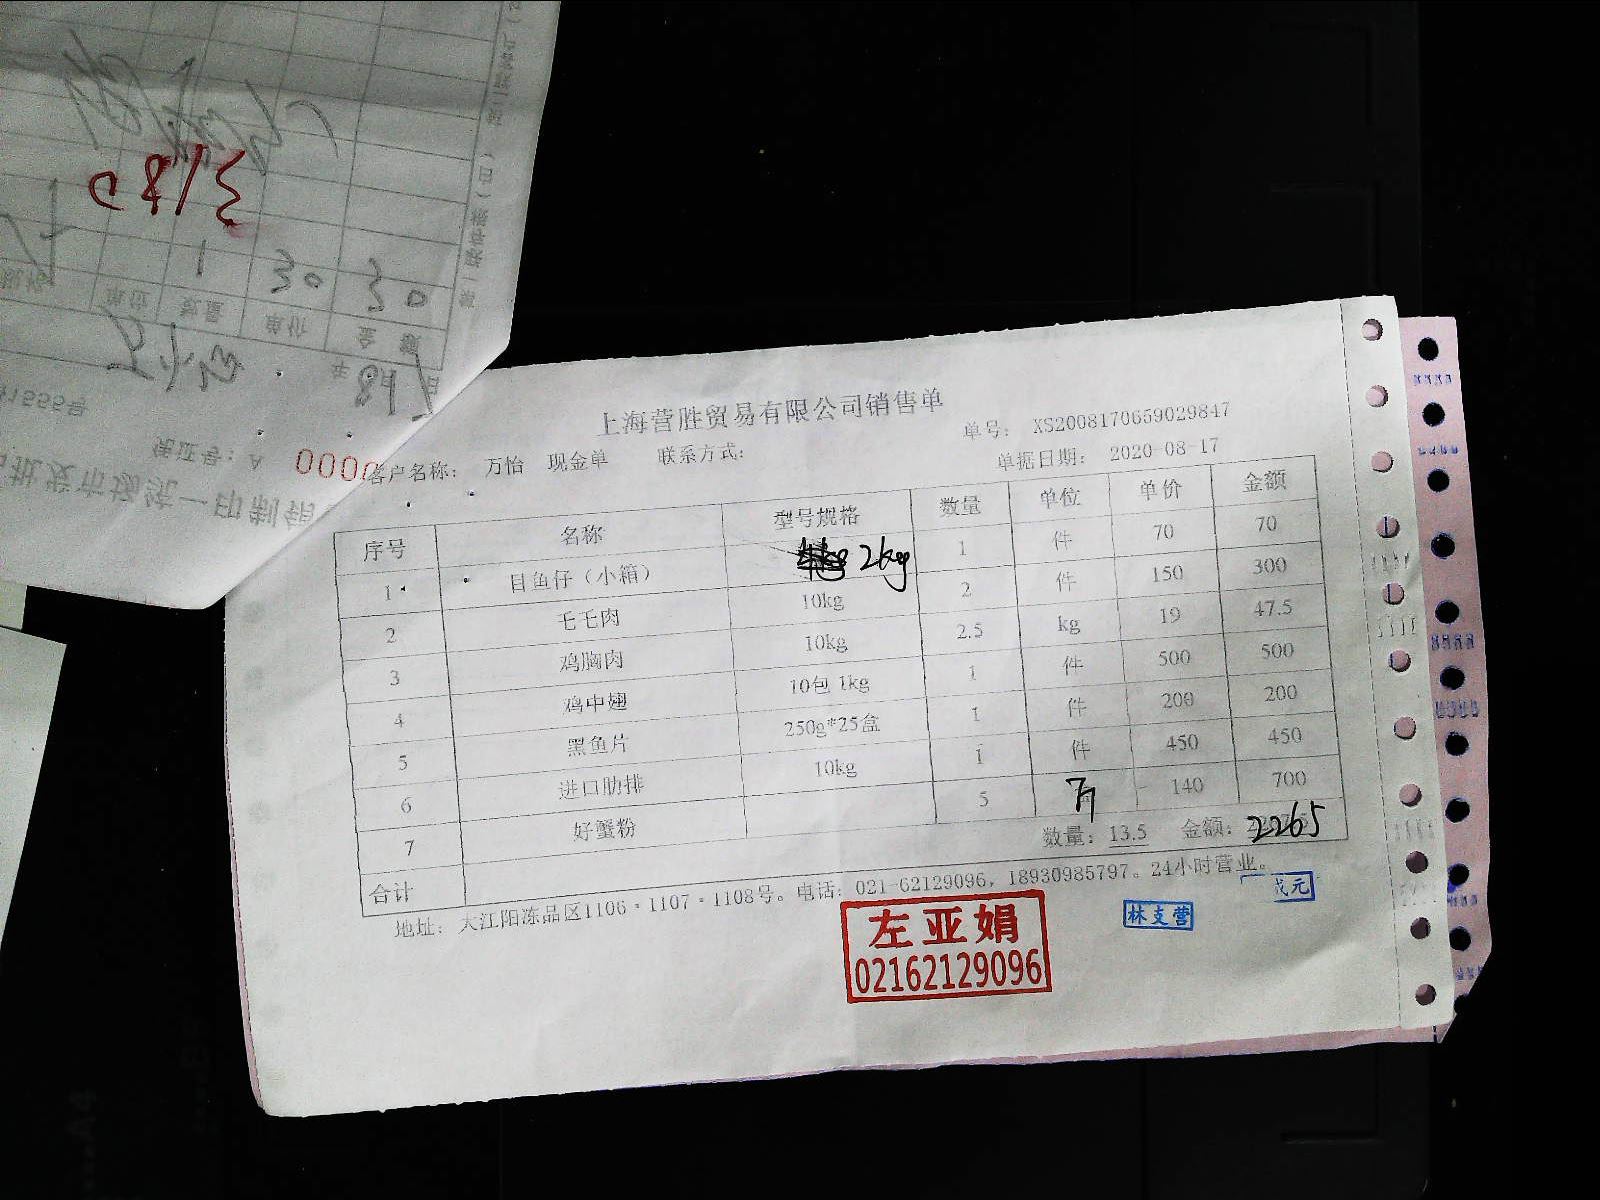 3180
1 30 30
数量 单价 金额
年 8月
0000
上海营胜贸易有限公司销售单
单号: XS2008170659029847
客户名称: 万怡 现金单 联系方式:
单据日期: 2020-08-17
序号 名称 型号规格 数量 单位 单价 金额
1 目鱼仔（小箱） 2kg 1 件 70 70
2 毛毛肉 10kg 2 件 150 300
3 鸡胸肉 10kg 2.5 kg 19 47.5
4 鸡中翅 10包 1kg 1 件 500 500
5 黑鱼片 250g*25盒 1 件 200 200
6 进口肋排 10kg 1 件 450 450
7 好蟹粉 5 140 700
合计 数量: 13.5 金额: 2265
地址: 大江阳冻品区1106·1107·1108号。电话: 021-62129096, 18930985797。24小时营业。
左亚娟
02162129096
林支营
元